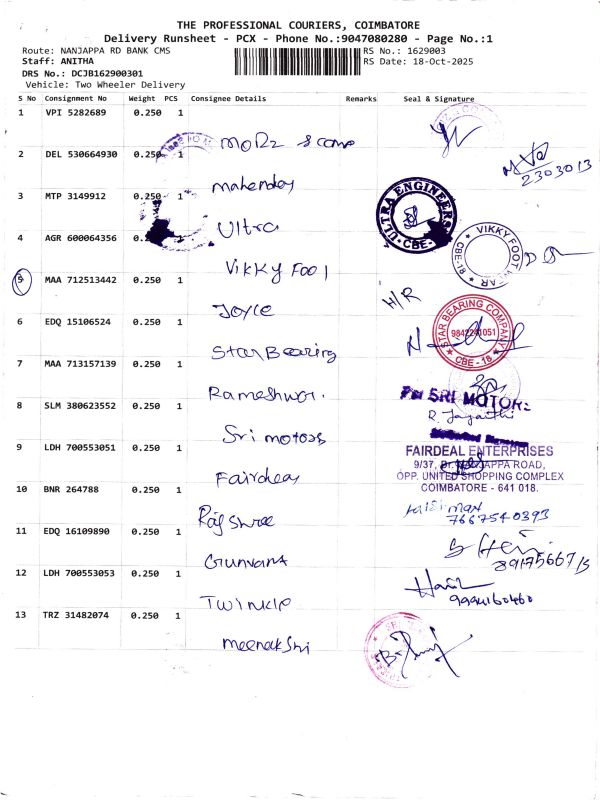 THE PROFESSIONAL COURIERS, COIMBATORE
Delivery Runsheet - PCX - Phone No.:9047080280 - Page No.:1
Route: NANJAPPA RD BANK CMS RS No.: 1629003
Staff: ANITHA RS Date: 18-Oct-2025
DRS No.: DCJB162900301
Vehicle: Two Wheeler Delivery
S No Consignment No Weight PCS Consignee Details Remarks Seal & Signature
1 VPI 5282689 0.250 1
2 DEL 530664930 0.250 1
Mahendas
2303013
3 MTP 3149912 0.250 1
Ultra
ULTRA ENGINEERS
CBE
4 AGR 600064356 0.250 1
Vikky Fool
VIKKY FOOT WEAR
CBE-18
5 MAA 712513442 0.250 1
Joyce
H/R
6 EDQ 15106524 0.250 1
Star Bearing
STAR BEARING COMPANY
CBE - 18
7 MAA 713157139 0.250 1
Rameshwar.
8 SLM 380623552 0.250 1
Sri motors
For SRI MOTORS
R. Jayanthi
9 LDH 700553051 0.250 1
Fairdeal
FAIRDEAL ENTERPRISES
9/37, Dr. NANJAPPA ROAD,
OPP. UNITED SHOPPING COMPLEX
COIMBATORE - 641 018.
10 BNR 264788 0.250 1
Rajshree
7667540393
11 EDQ 16109890 0.250 1
Gunvant
12 LDH 700553053 0.250 1
Twinkle
9994160460
13 TRZ 31482074 0.250 1
meenakshi